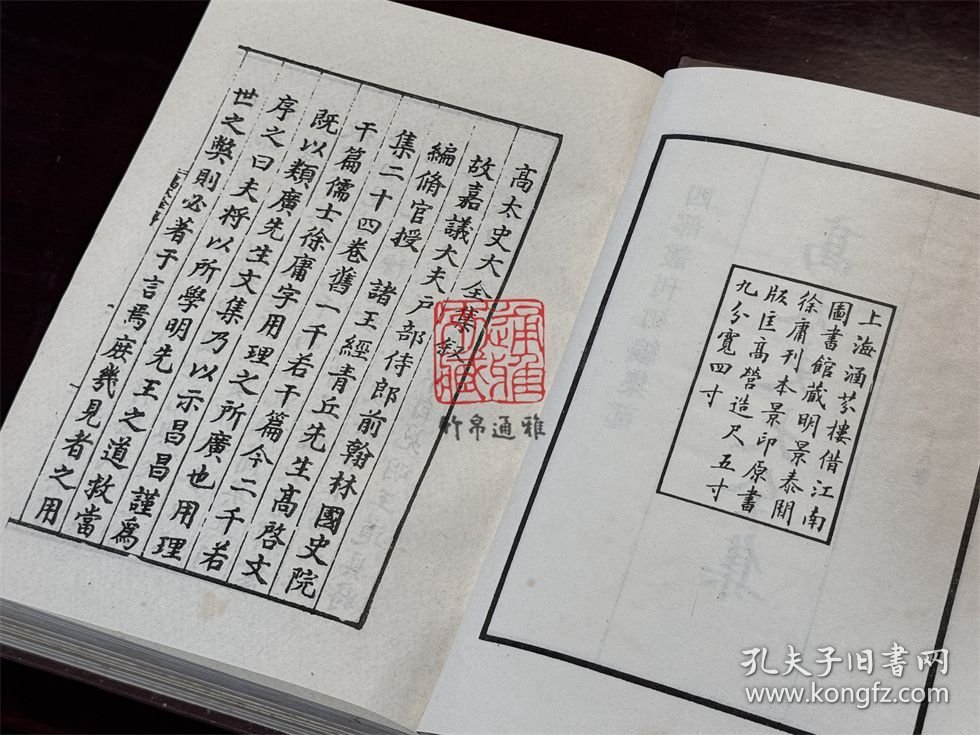 上海涵芬樓借江南
圖書館藏明景泰閒
徐庸刊本景印原書
版匡高營造尺五寸
九分寬四寸
高太史大全集敘
故嘉議大夫戶部侍郎前翰林國史院
編脩官授 諸王經青丘先生高啓文
集二十四卷舊一千若干篇今二千若
干篇儒士徐庸字用理之所廣也用理
既以類廣先生文集乃以示昌昌謹爲
序之曰夫將以所學明先王之道救當
世之獘則必著于言焉庶幾見者之用
竹帛通雅
孔夫子旧书网
www.kongfz.com